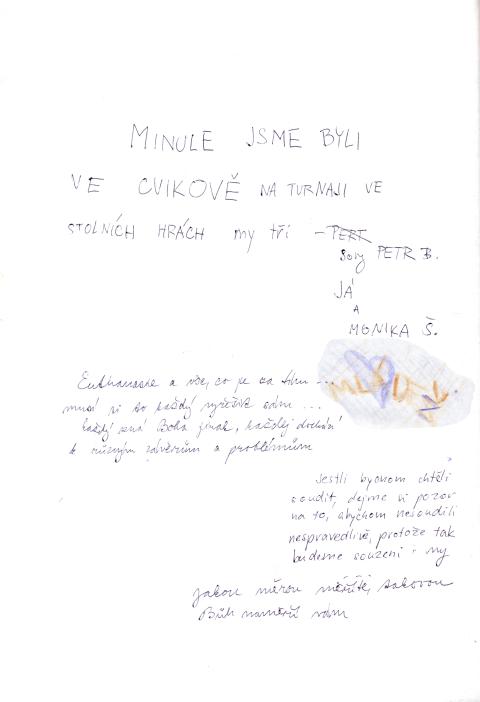 MINULE JSME BYLI
VE CVIKOVĚ NA TURNAJI VE
STOLNÍCH HRÁCH my tří – PETR
Sory PETR B.
JÁ
A
MONIKA Š.
Euthanasie a vše, co je za tím ...
musí si to každý vyřešit sám ...
každý zná Boha jinak, každej dochází
k různým závěrům a problémům
Jestli bychom chtěli
soudit, dejme si pozor
na to, abychom nesoudili
nespravedlivě, protože tak
budeme souzeni i my
jakou měrou měříte, takovou
Bůh naměří vám